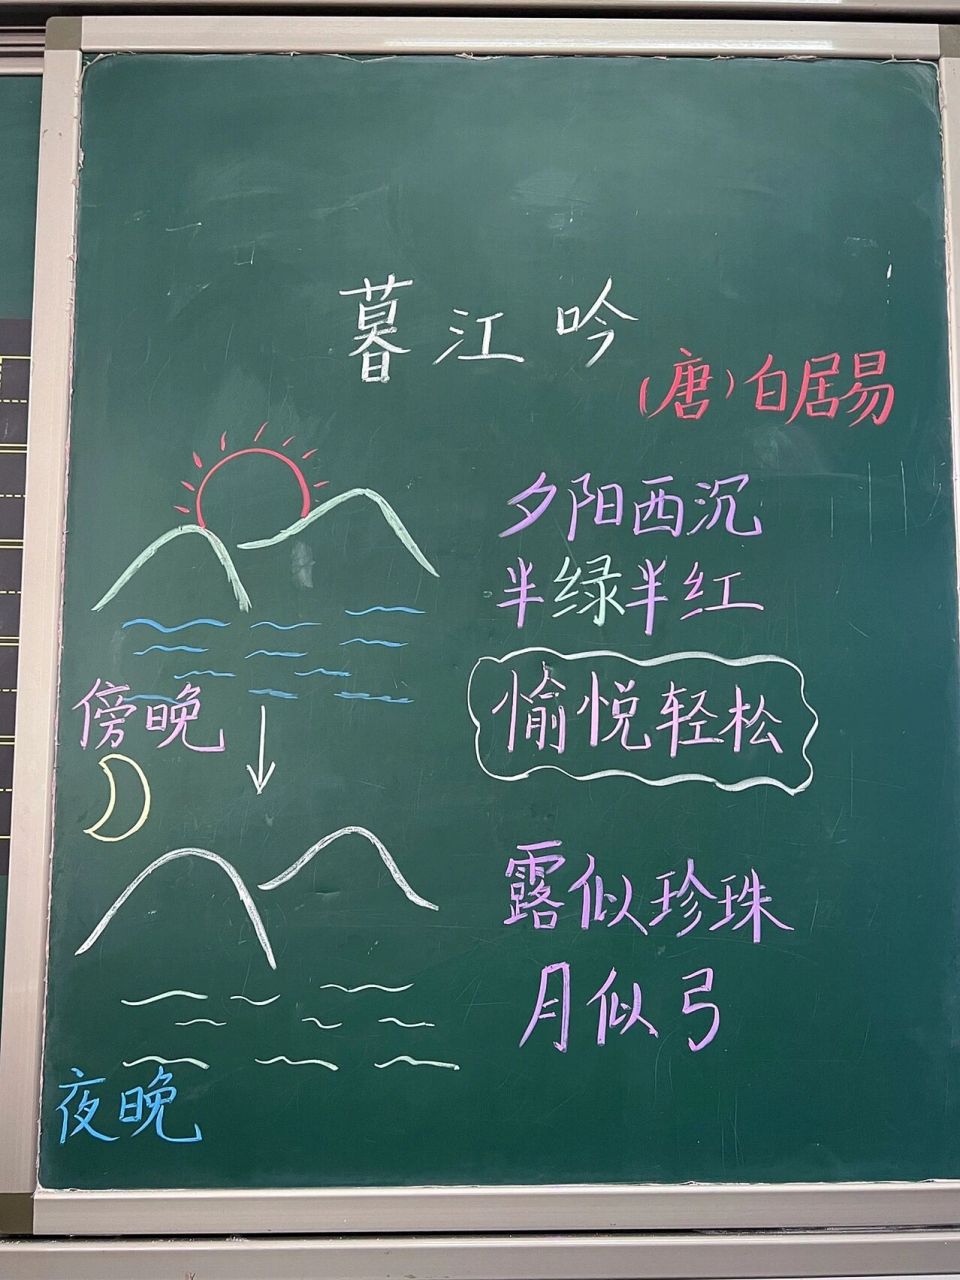 暮江吟
（唐）白居易
夕阳西沉
半绿半红
傍晚
愉悦轻松
露似珍珠
月似弓
夜晚